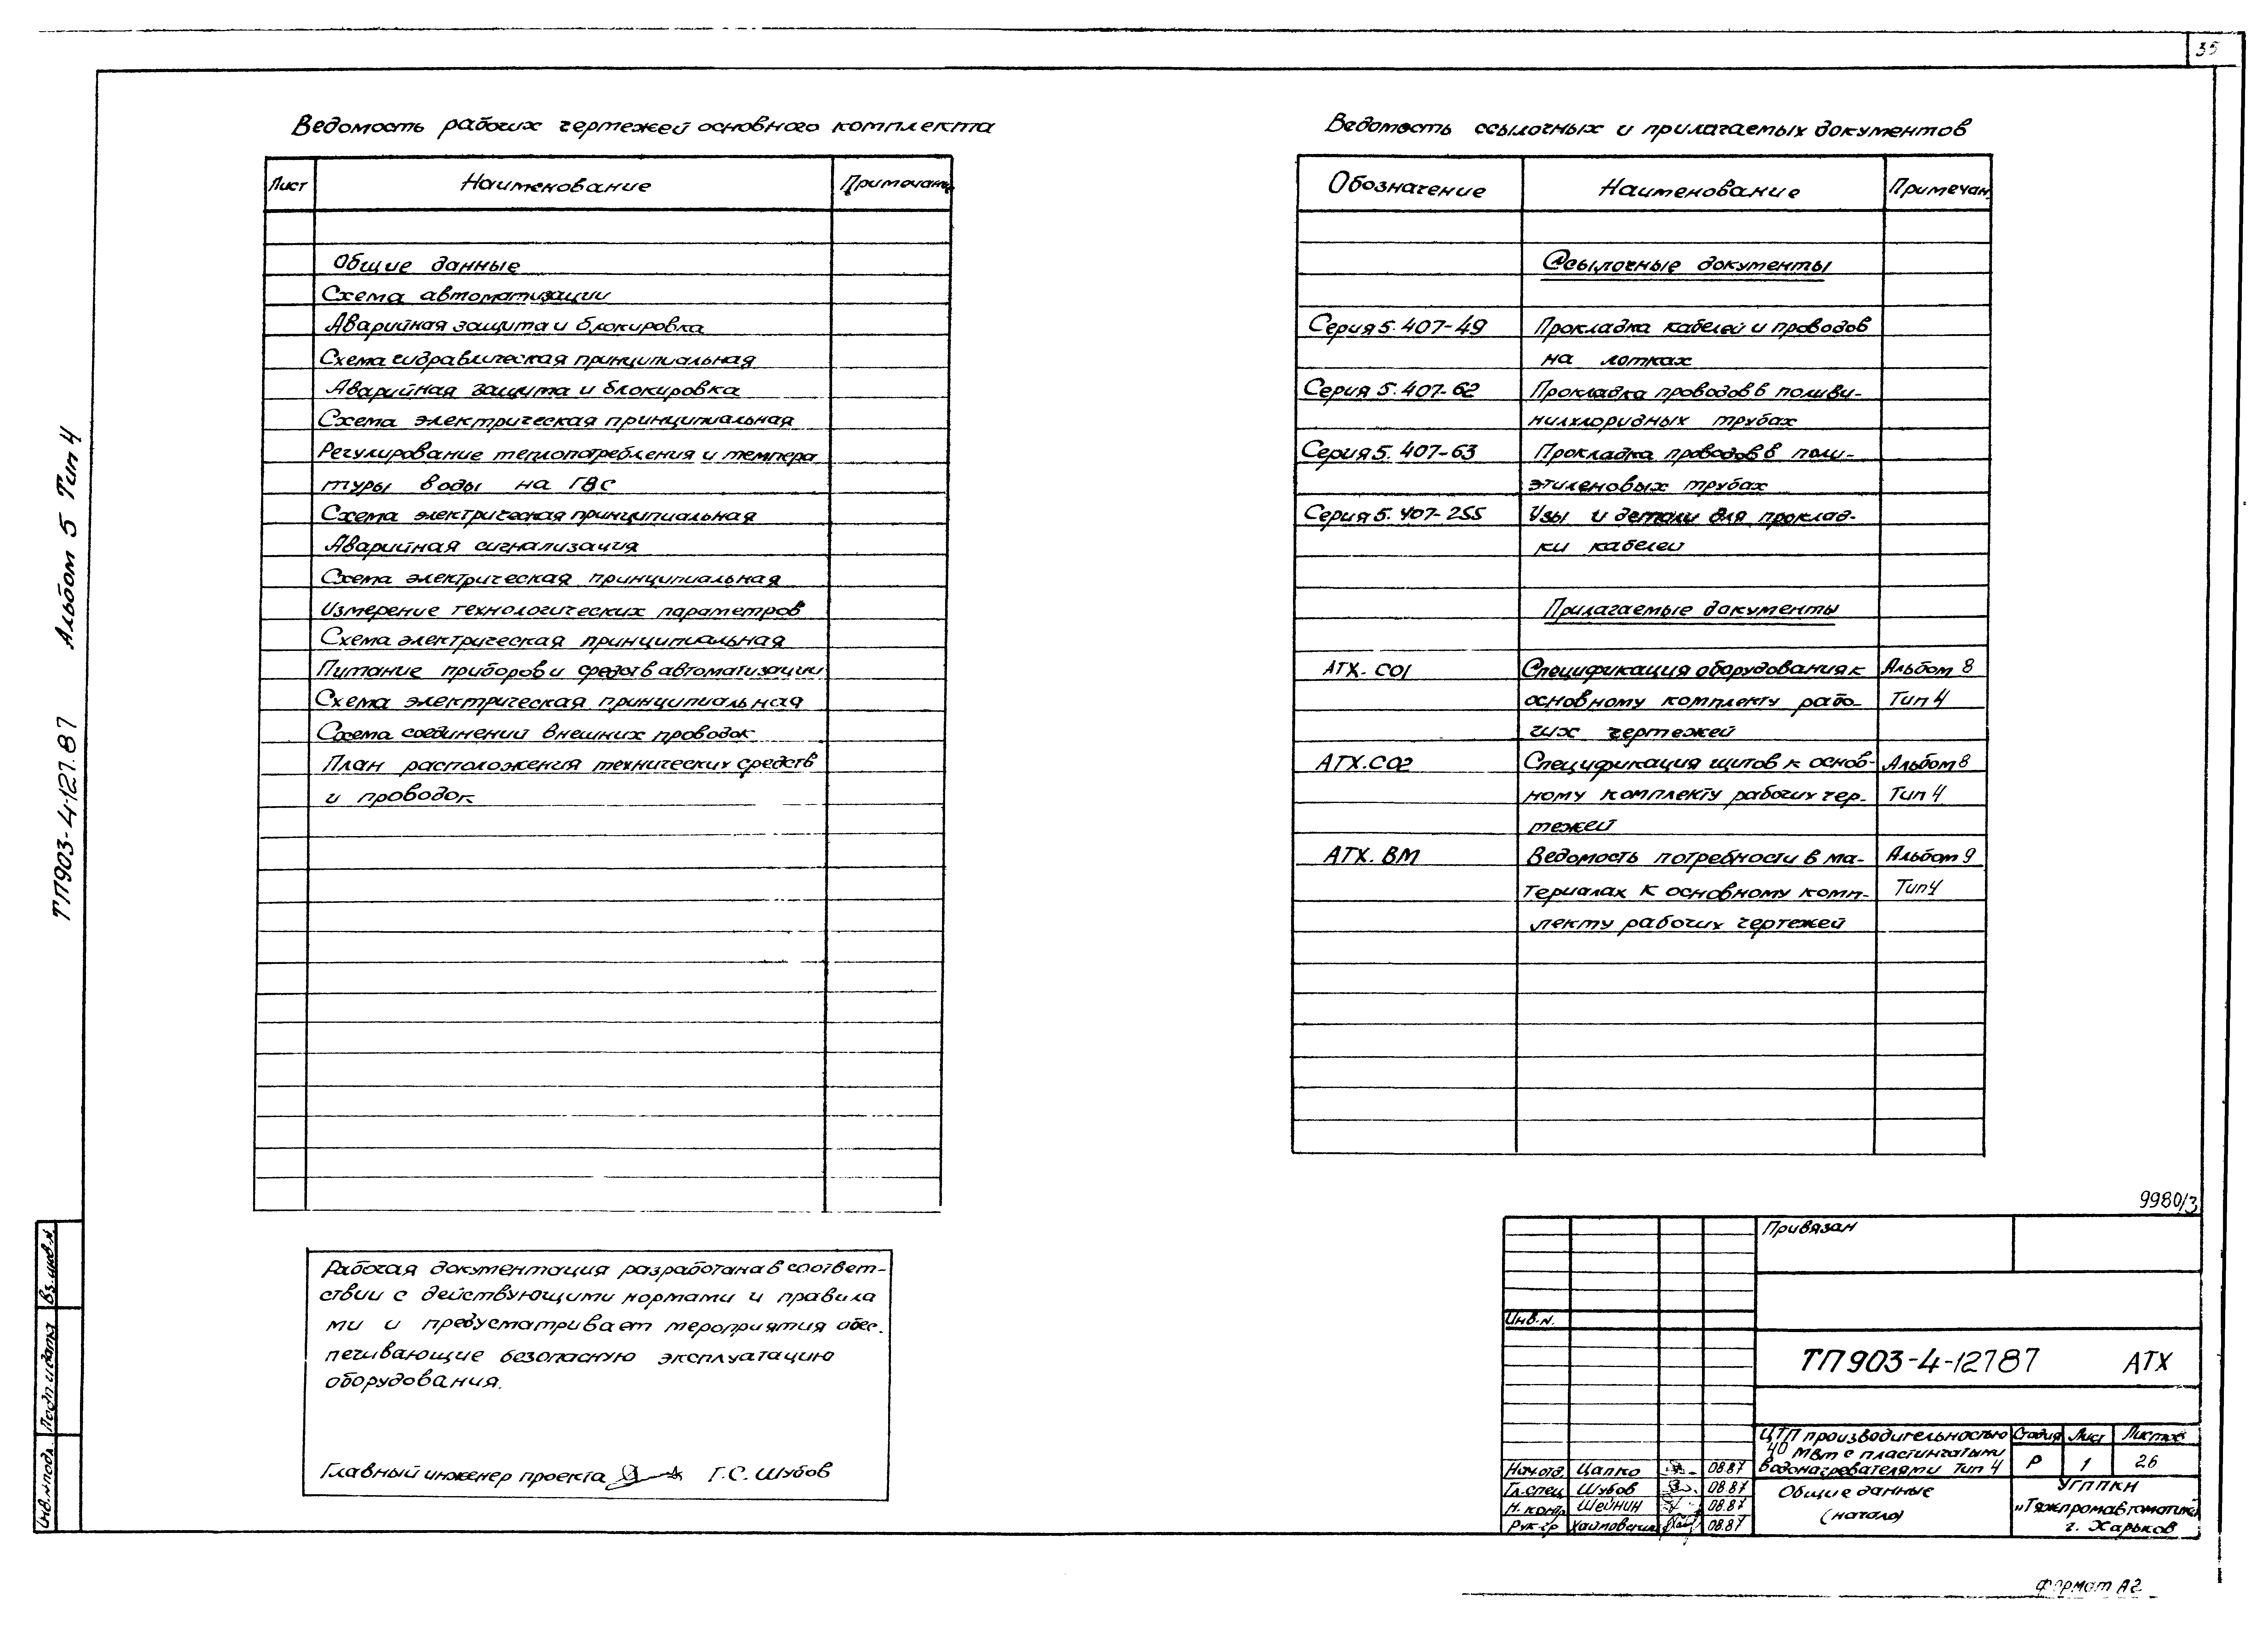 35
Ведомость рабочих чертежей основного комплекта
Лист Наименование Примечание
Общие данные
Схема автоматизации
Аварийная защита и блокировка
Схема гидравлическая принципиальная
Аварийная защита и блокировка
Схема электрическая принципиальная
Регулирование теплопотребления и темпера
туры воды на ГВС
Схема электрическая принципиальная
Аварийная сигнализация
Схема электрическая принципиальная
Измерение технологических параметров
Схема электрическая принципиальная
Питание приборов и средств автоматизации
Схема электрическая принципиальная
Схема соединений внешних проводок
План расположения технических средств
и проводок
Рабочая документация разработана в соответ-
ствии с действующими нормами и правила
ми и предусматривает мероприятия обес.
печивающие безопасную эксплуатацию
оборудования.
Главный инженер проекта Г.С. Шубов
Ведомость ссылочных и прилагаемых документов
Обозначение Наименование Примечан.
Ссылочные документы
Серия 5.407-49 Прокладка кабелей и проводов
на лотках
Серия 5.407-62 Прокладка проводов в поливи-
нилхлоридных трубах
Серия 5.407-63 Прокладка проводов в поли-
этиленовых трубах
Серия 5.407-255 Узы и детали для проклад-
ки кабелей
Прилагаемые документы
АТХ. СО1 Спецификация оборудования к Альбом 8
основному комплекту рабо- Тип 4
чих чертежей
АТХ.СО2 Спецификация щитов к основ- Альбом 8
ному комплекту рабочих чер- Тип 4
тежей
АТХ. ВМ Ведомость потребности в ма- Альбом 9
териалах к основному комп- Тип 4
лекту рабочих чертежей
9980/3
Привязан
Инв.н.
ТП903-4-12787 АТХ
ЦТП производительностью
40 МВт с пластинчатыми
водонагревателями Тип 4
Стадия Лист Листов
Р 1 26
Нач.отд. Цапко 08.87
Гл.спец Шубов 08.87
Н. контр Шейнин 08.87
Рук.гр Хаймович 08.87
Общие данные
(начало)
УГППКИ
„Тяжпромавтоматика
г. Харьков
Формат А2
ТП903-4-121.87 Альбом 5 Тип 4
Инв.н подл. Подп. и дата Вз. инв.н.